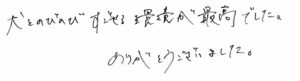 犬とのびのびすごせる環境が最高でした。
ありがとうございました。